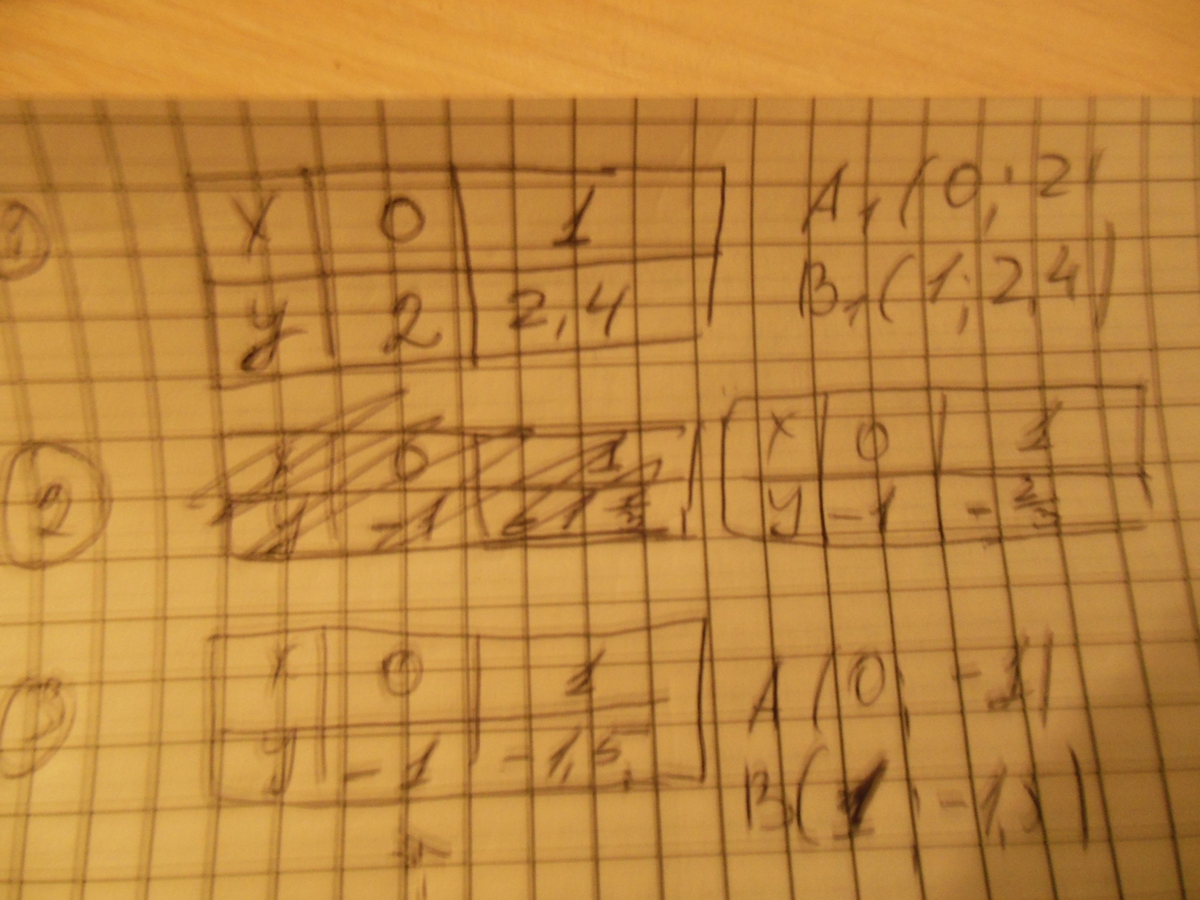 1 x 0 1 A₁(0; 2)
y 2 2,4 B₁(1; 2,4)
2 x 0 1 x 0 1
y -1 y -1 -2/3
3 x 0 1 A (0, -1)
y -1 -1,5 B(1, -1,5)